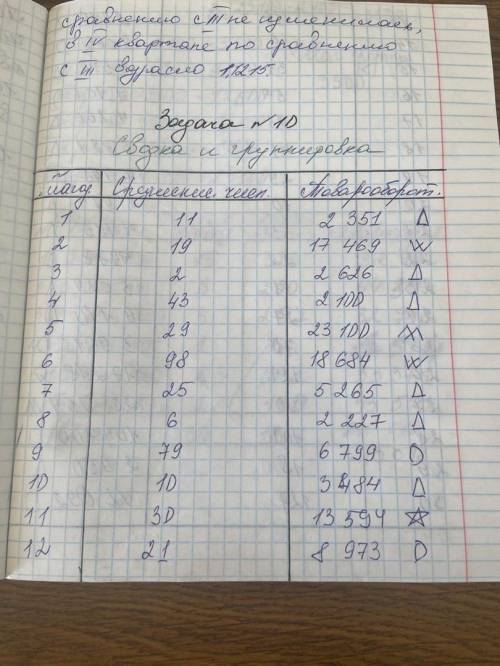 сравнению с III не изменилась,
в IV квартале по сравнению
с III возрасло 1,1215
Задача № 10
Сводка и группировка
Магаз Среднеспис. числ. Товарооборот.
1 11 2 351 Δ
2 19 17 469 W
3 2 2 626 Δ
4 43 2 100 Δ
5 29 23 100 Ж
6 98 18 684 W
7 25 5 265 Δ
8 6 2 227 Δ
9 79 6 799 O
10 10 3 484 Δ
11 30 13 594 ☆
12 21 8 973 O